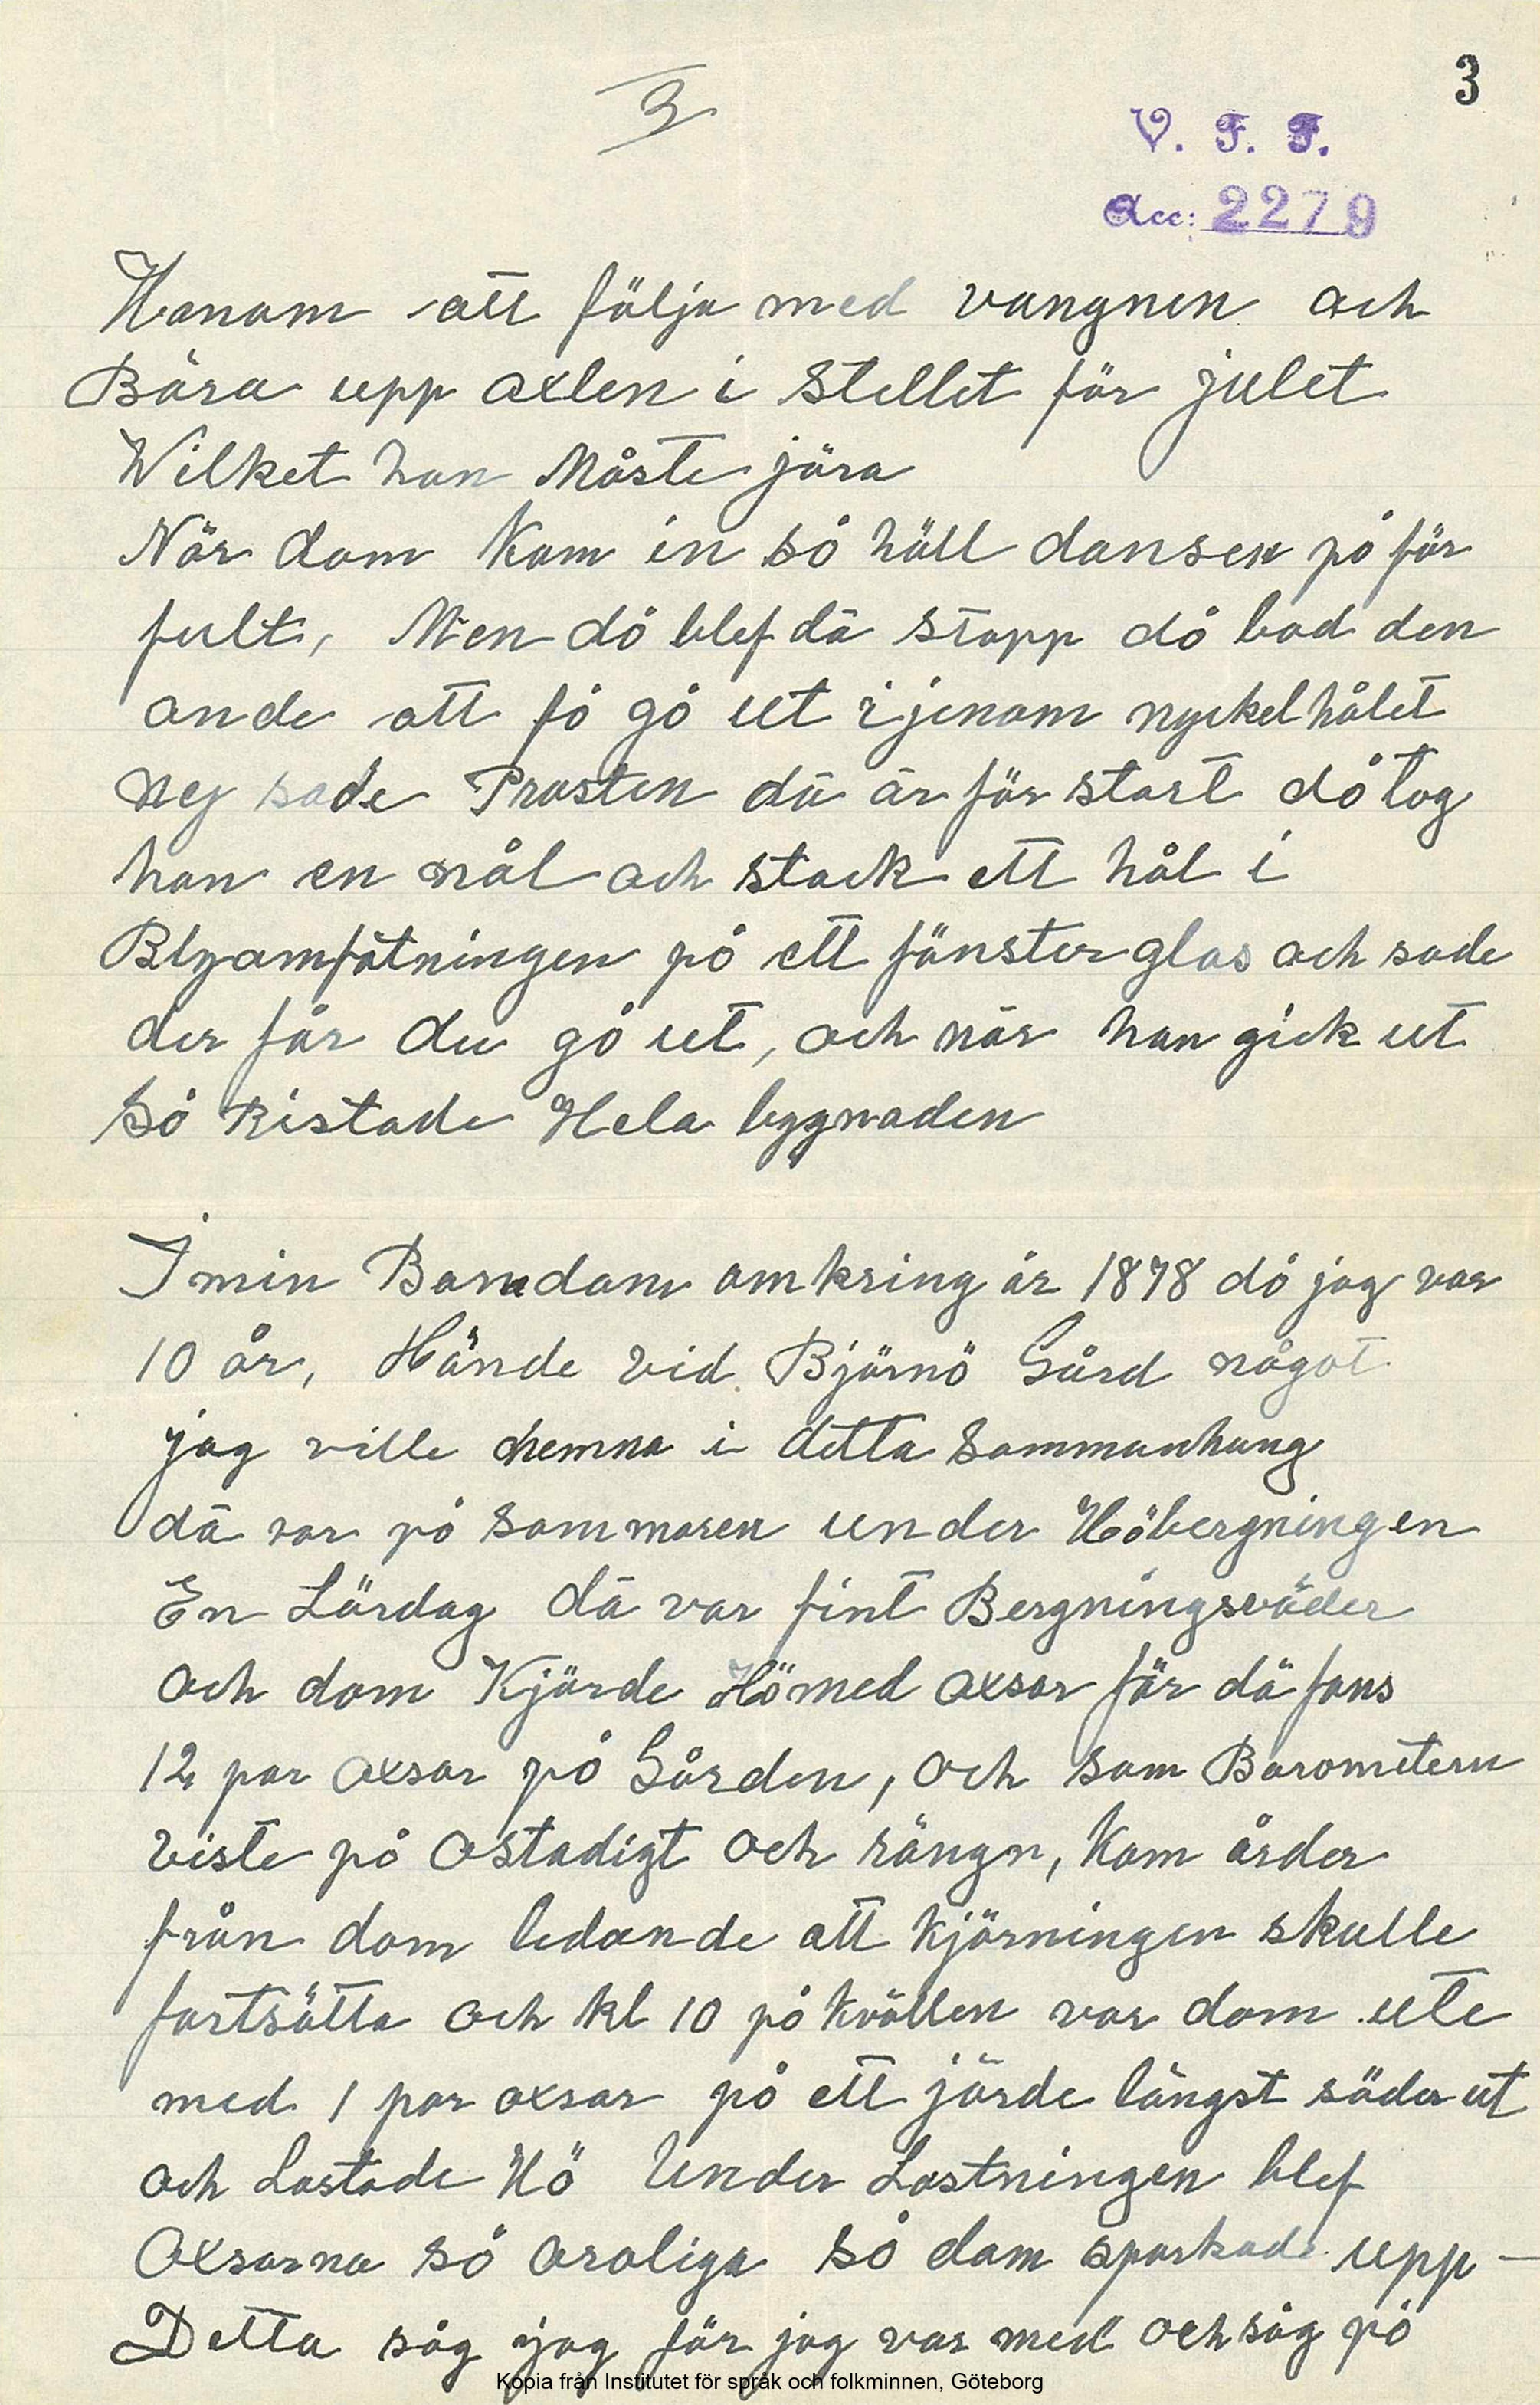 3
3
V. F. F.
Acc: 2279
Honom att följa med vangnen och
Bära upp axlen i stellet för julet
Wilket han Måste jöra
När dom kom in så höll dansen på för
fult, Men då blef dä stopp då bad den
onde att få gå ut ijenom nyckelhålet
nej sade Prosten dä är för stort då tog
han en nål och stack ett hål i
Blyomfatningen på ett fönster glas och sade
der får du gå ut, och när han gick ut
så ristade Hela bygnaden
I min Barndom omkring år 1878 då jag var
10 år, Hände vid Björnö Gård något
jag ville nemna i detta sammanhang
dä var på sommaren under Höbergningen
En Lördag dä var fint Bergningsväder
och dom Kjörde Hö med oxsar för dä fans
12 par oxsar på Gården, och som Barometern
viste på ostadigt och rängn, kom order
från dom ledande att kjörningen skulle
fortsätta och kl 10 på kvällen var dom ute
med 1 par oxsar på ett järde längst söder ut
och Lastade Hö Under Lastningen blef
Oxsarna så oroliga så dom sparkade upp —
Detta såg jag för jag var med och såg på
Kopia från Institutet för språk och folkminnen, Göteborg